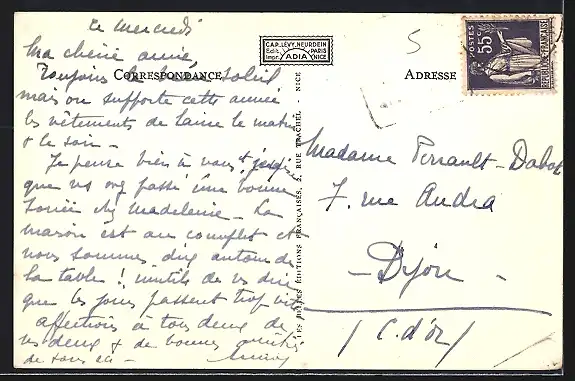 le mercredi
Ma chérie amie,
Toujours le soleil
mais on supporte cette année
les vêtements de laine le matin
& le soir -
Je pense bien à vous & j'espère
que vs avez passé une bonne
soirée chez Madeleine - La
maison est au complet et
nous sommes dix autour de
la table ! inutile de vs dire
que les jours passent trop vite
affections à tous deux de
ns deux & de bonnes amitiés
de tous ici -
CORRESPONDANCE
CAP. LÉVY, NEURDEIN
Édit. PARIS
Impr. ADIA NICE
LES BELLES ÉDITIONS FRANÇAISES, 2, RUE TRACHEL - NICE
5
ADRESSE
POSTES 55c
RÉPUBLIQUE FRANÇAISE
Madame Perrault-Dabot
7. rue Andra
- Dijon -
(C. d'or)